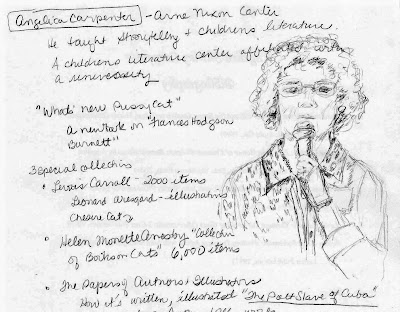 Angelica Carpenter - Arne Nixon Center
He taught storytelling + childrens literature.
A childrens literature center affiliated with
a university
"What's new Pussycat"
A new book on "Frances Hodgson
Burnett"
3 Special collections
• Lewis Carroll - 2000 items
Leonard - illustrations
Chesire Catz
• Helen Monette Amestoy "Collection
of Books on Cats" 6,000 items
• The Papers of Authors + Illustrators
How it's written, illustrated "The Poet Slave of Cuba"